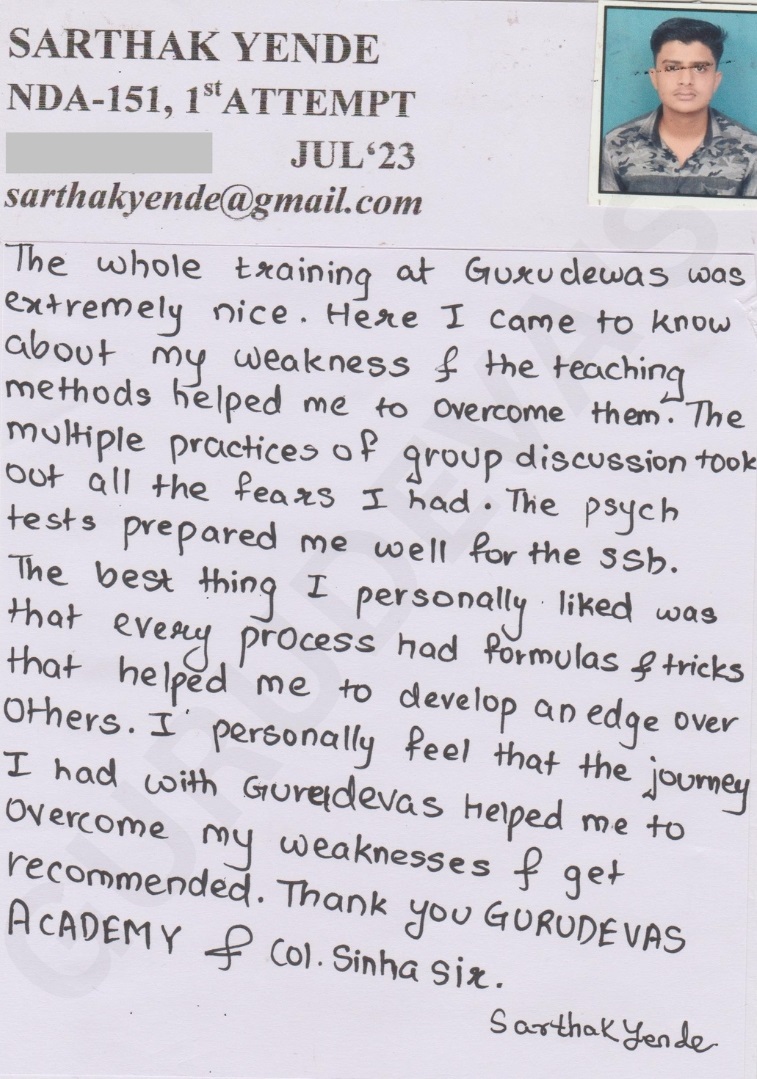 SARTHAK YENDE
NDA-151, 1st ATTEMPT
JUL‘23
sarthakyende@gmail.com
The whole training at Gurudewas was
extremely nice. Here I came to know
about my weakness & the teaching
methods helped me to overcome them. The
multiple practices of group discussion took
out all the fears I had. The psych
tests prepared me well for the ssb.
The best thing I personally liked was
that every process had formulas & tricks
that helped me to develop an edge over
Others. I personally feel that the journey
I had with Gurudevas Helped me to
overcome my weaknesses & get
recommended. Thank you GURUDEVAS
ACADEMY & Col. Sinha Sir.
Sarthak Yende
GURUDEVAS